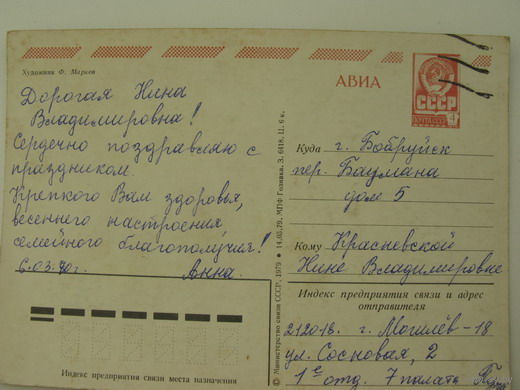 Художник Ф. Марков
АВИА
СССР
Дорогая Нина
Владимировна!
Сердечно поздравляю с
праздником.
Крепкого Вам здоровья,
весеннего настроения,
семейного благополучия!
6.03.80г. Анна.
Куда г. Бобруйск
пер. Баумана
дом 5
Кому Красневской
Нине Владимировне
Индекс предприятия связи и адрес
отправителя
212018. г. Могилёв-18
ул. Сосновая, 2
1е отд. 7 палата
Индекс предприятия связи места назначения
© Министерство связи СССР, 1979 ● 14.05.79. МПФ Гознака. З. 6418. Ц. 6 к.